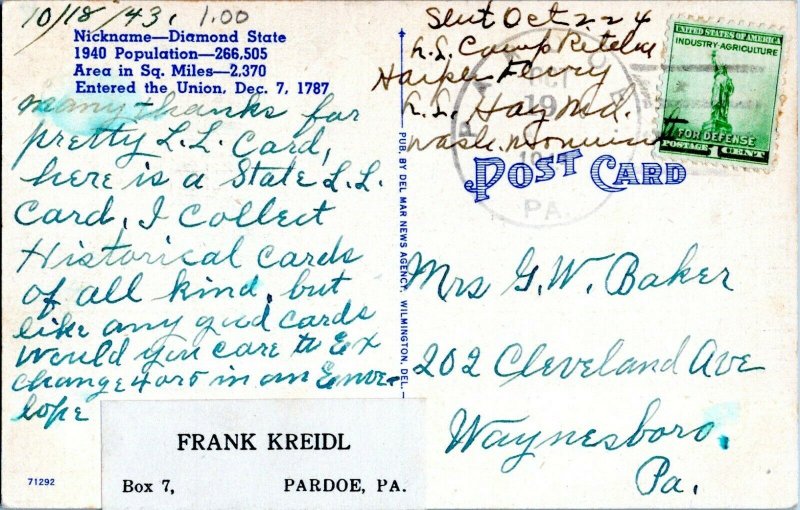 10/18/43, 1.00
Nickname—Diamond State
1940 Population—266,505
Area in Sq. Miles—2,370
Entered the Union, Dec. 7, 1787
many thanks for
pretty L.L. Card,
here is a State L.L.
Card. I Collect
Historical Cards
of all kind, but
like any good cards
Would you care to Ex
change 4 or 5 in an Enve-
lope
FRANK KREIDL
Box 7, PARDOE, PA.
71292
PUB. BY DEL MAR NEWS AGENCY, WILMINGTON, DEL.
Sent Oct 22 4
L.L. Camp Ritchie
Harper Ferry
L.L. Hay Md.
Wash. Monument
UNITED STATES OF AMERICA
INDUSTRY-AGRICULTURE
FOR DEFENSE
POSTAGE 1 CENT
OCT
19
PA.
POST CARD
Mrs G. W. Baker
202 Cleveland Ave
Waynesboro.
Pa.